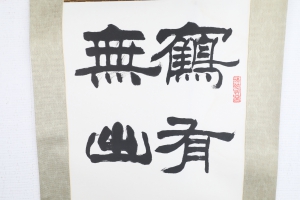 鶴有
無出